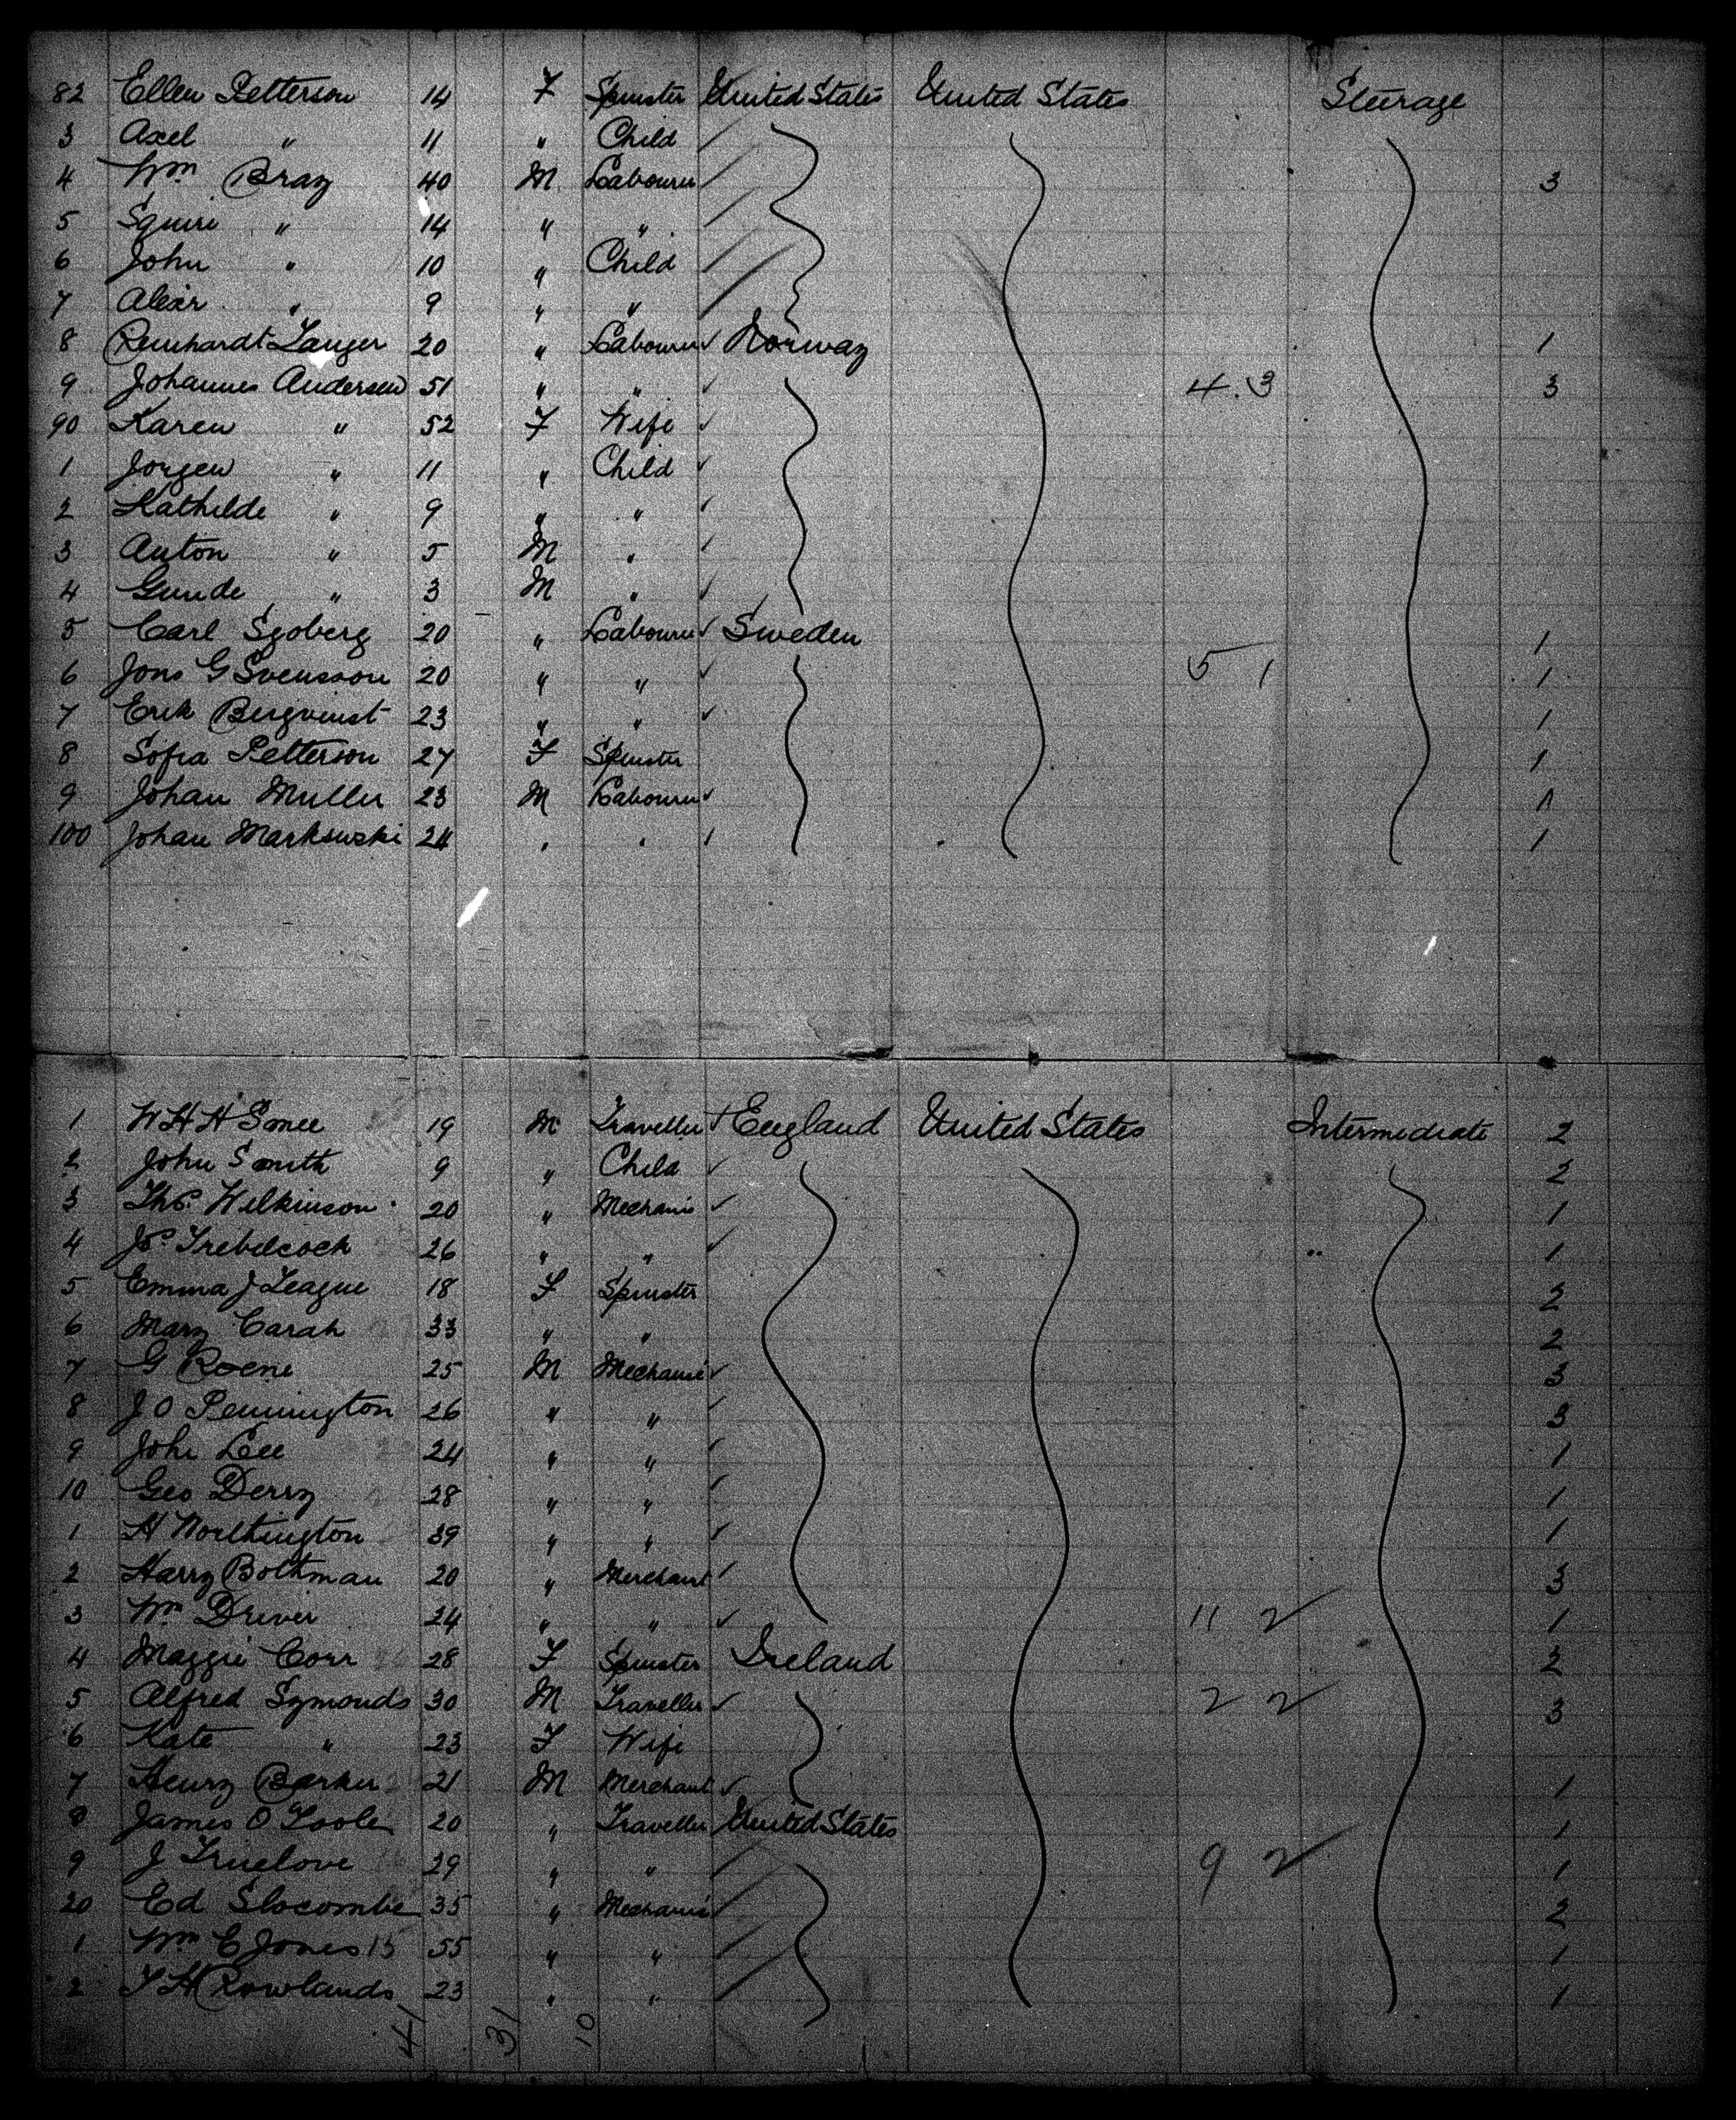 82 Ellen Petterson 14 F Spinster United States United States Steerage
3 Axel " 11 " Child
4 Wm Bray 40 M Labourer 3
5 Squire " 14 " "
6 John " 10 " Child
7 " 9 " "
8 Reinhardt Langer 20 " Labourer Norway 1
9 Johannes Andersen 51 " " 4.3 3
90 Karen " 52 F Wife
1 Jorgen " 11 " Child
2 Kathilde " 9 " "
3 Anton " 5 M "
4 Gunde " 3 M "
5 Carl Sjoberg 20 " Labourer Sweden 1
6 Jons G Svensson 20 " " 5 1 1
7 Erik Bergvinst 23 " " 1
8 Sofia Petterson 27 F Spinster 1
9 Johan Muller 23 M Labourer 1
100 Johan Markowski 24 " " 1
1 W H H 19 M Traveller England United States Intermediate 2
2 John Smith 9 " Child 2
3 Thos. Wilkinson 20 " Mechanic 1
4 Js. Trebilcock 26 " " 1
5 Emma J League 18 F Spinster 2
6 Mary Carah 33 " " 2
7 G 25 M Mechanic 3
8 J O Pennington 26 " " 3
9 John Lee 24 " " 1
10 Geo Derry 28 " " 1
1 H Northington 39 " " 1
2 Harry Boltman 20 " Merchant 3
3 Wm Driver 24 " " 11 2 1
4 Maggie Corr 28 F Spinster Ireland 2
5 Alfred Symonds 30 M Traveller 2 2 3
6 Kate " 23 F Wife
7 Henry Barker 21 M Merchant 1
8 James O Toole 20 " Traveller United States 1
9 J Truelove 29 " " 9 2 1
20 Ed Slocombe 35 " Mechanic 2
1 Wm C Jones 15 55 " " 1
2 T H Rowlands 23 " " 1
41 31 10